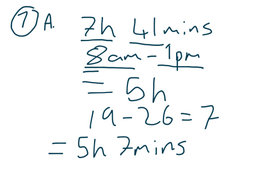 ① A. 7h 41mins
8am - 1pm
= 5h
19 - 26 = 7
= 5h 7mins